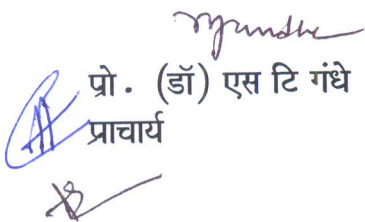 प्रो. (डॉ) एस टि गंधे
प्राचार्य